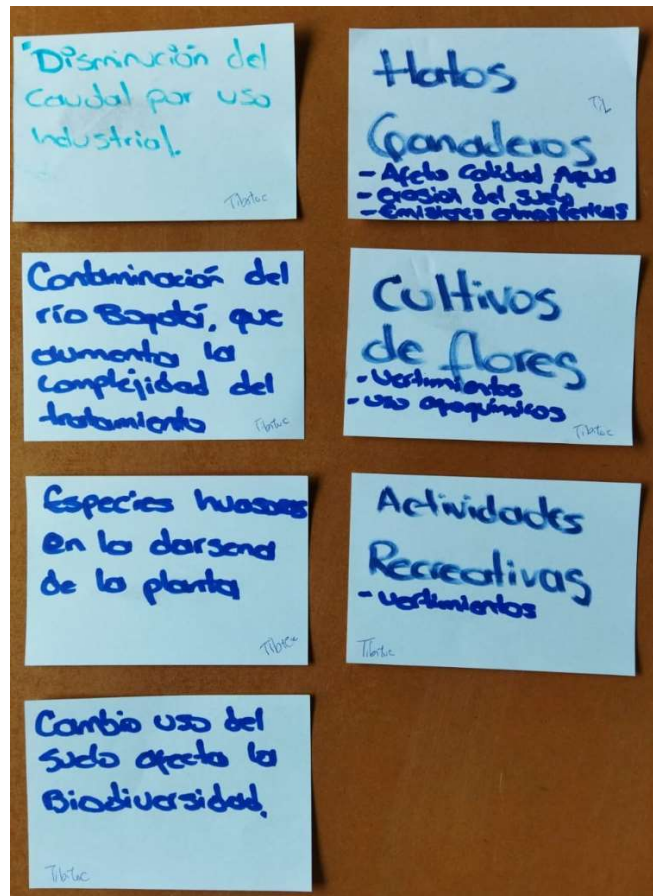 "Disminución del
Caudal por uso
Industrial.
Tibitoc
Contaminación del
río Bogotá, que
aumenta la
complejidad del
tratamiento
Tibitoc
Especies
en la darsena
de la planta
Cambio uso del
suelo afecta la
Biodiversidad.
Tibitoc
Hatos
TiL
Ganaderos
- Afecta Calidad Agua
- erosion del suelo
- Emisiones atmosfericas
Cultivos
de flores
- Vertimientos
- uso agoquímicos
Tibitoc
Actividades
Recreativas
- vertimientos
Tibitoc